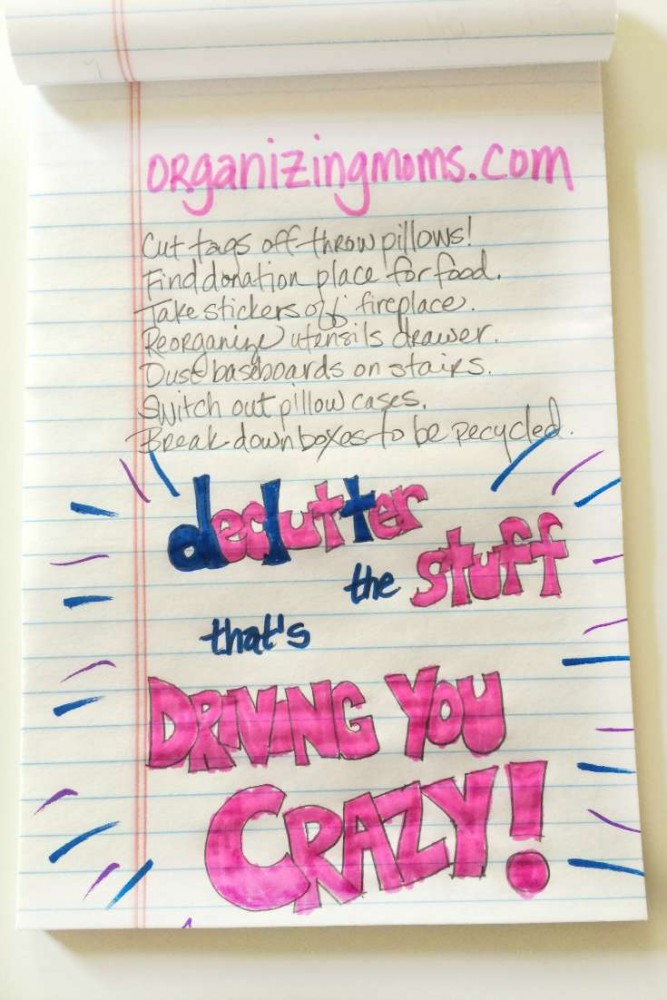 organizingmoms.com
Cut tags off throw pillows!
Find donation place for food.
Take stickers off fireplace.
Reorganize utensils drawer.
Dust baseboards on stairs.
Switch out pillow cases.
Break down boxes to be recycled.
declutter
the stuff
that's
DRIVING YOU
CRAZY!